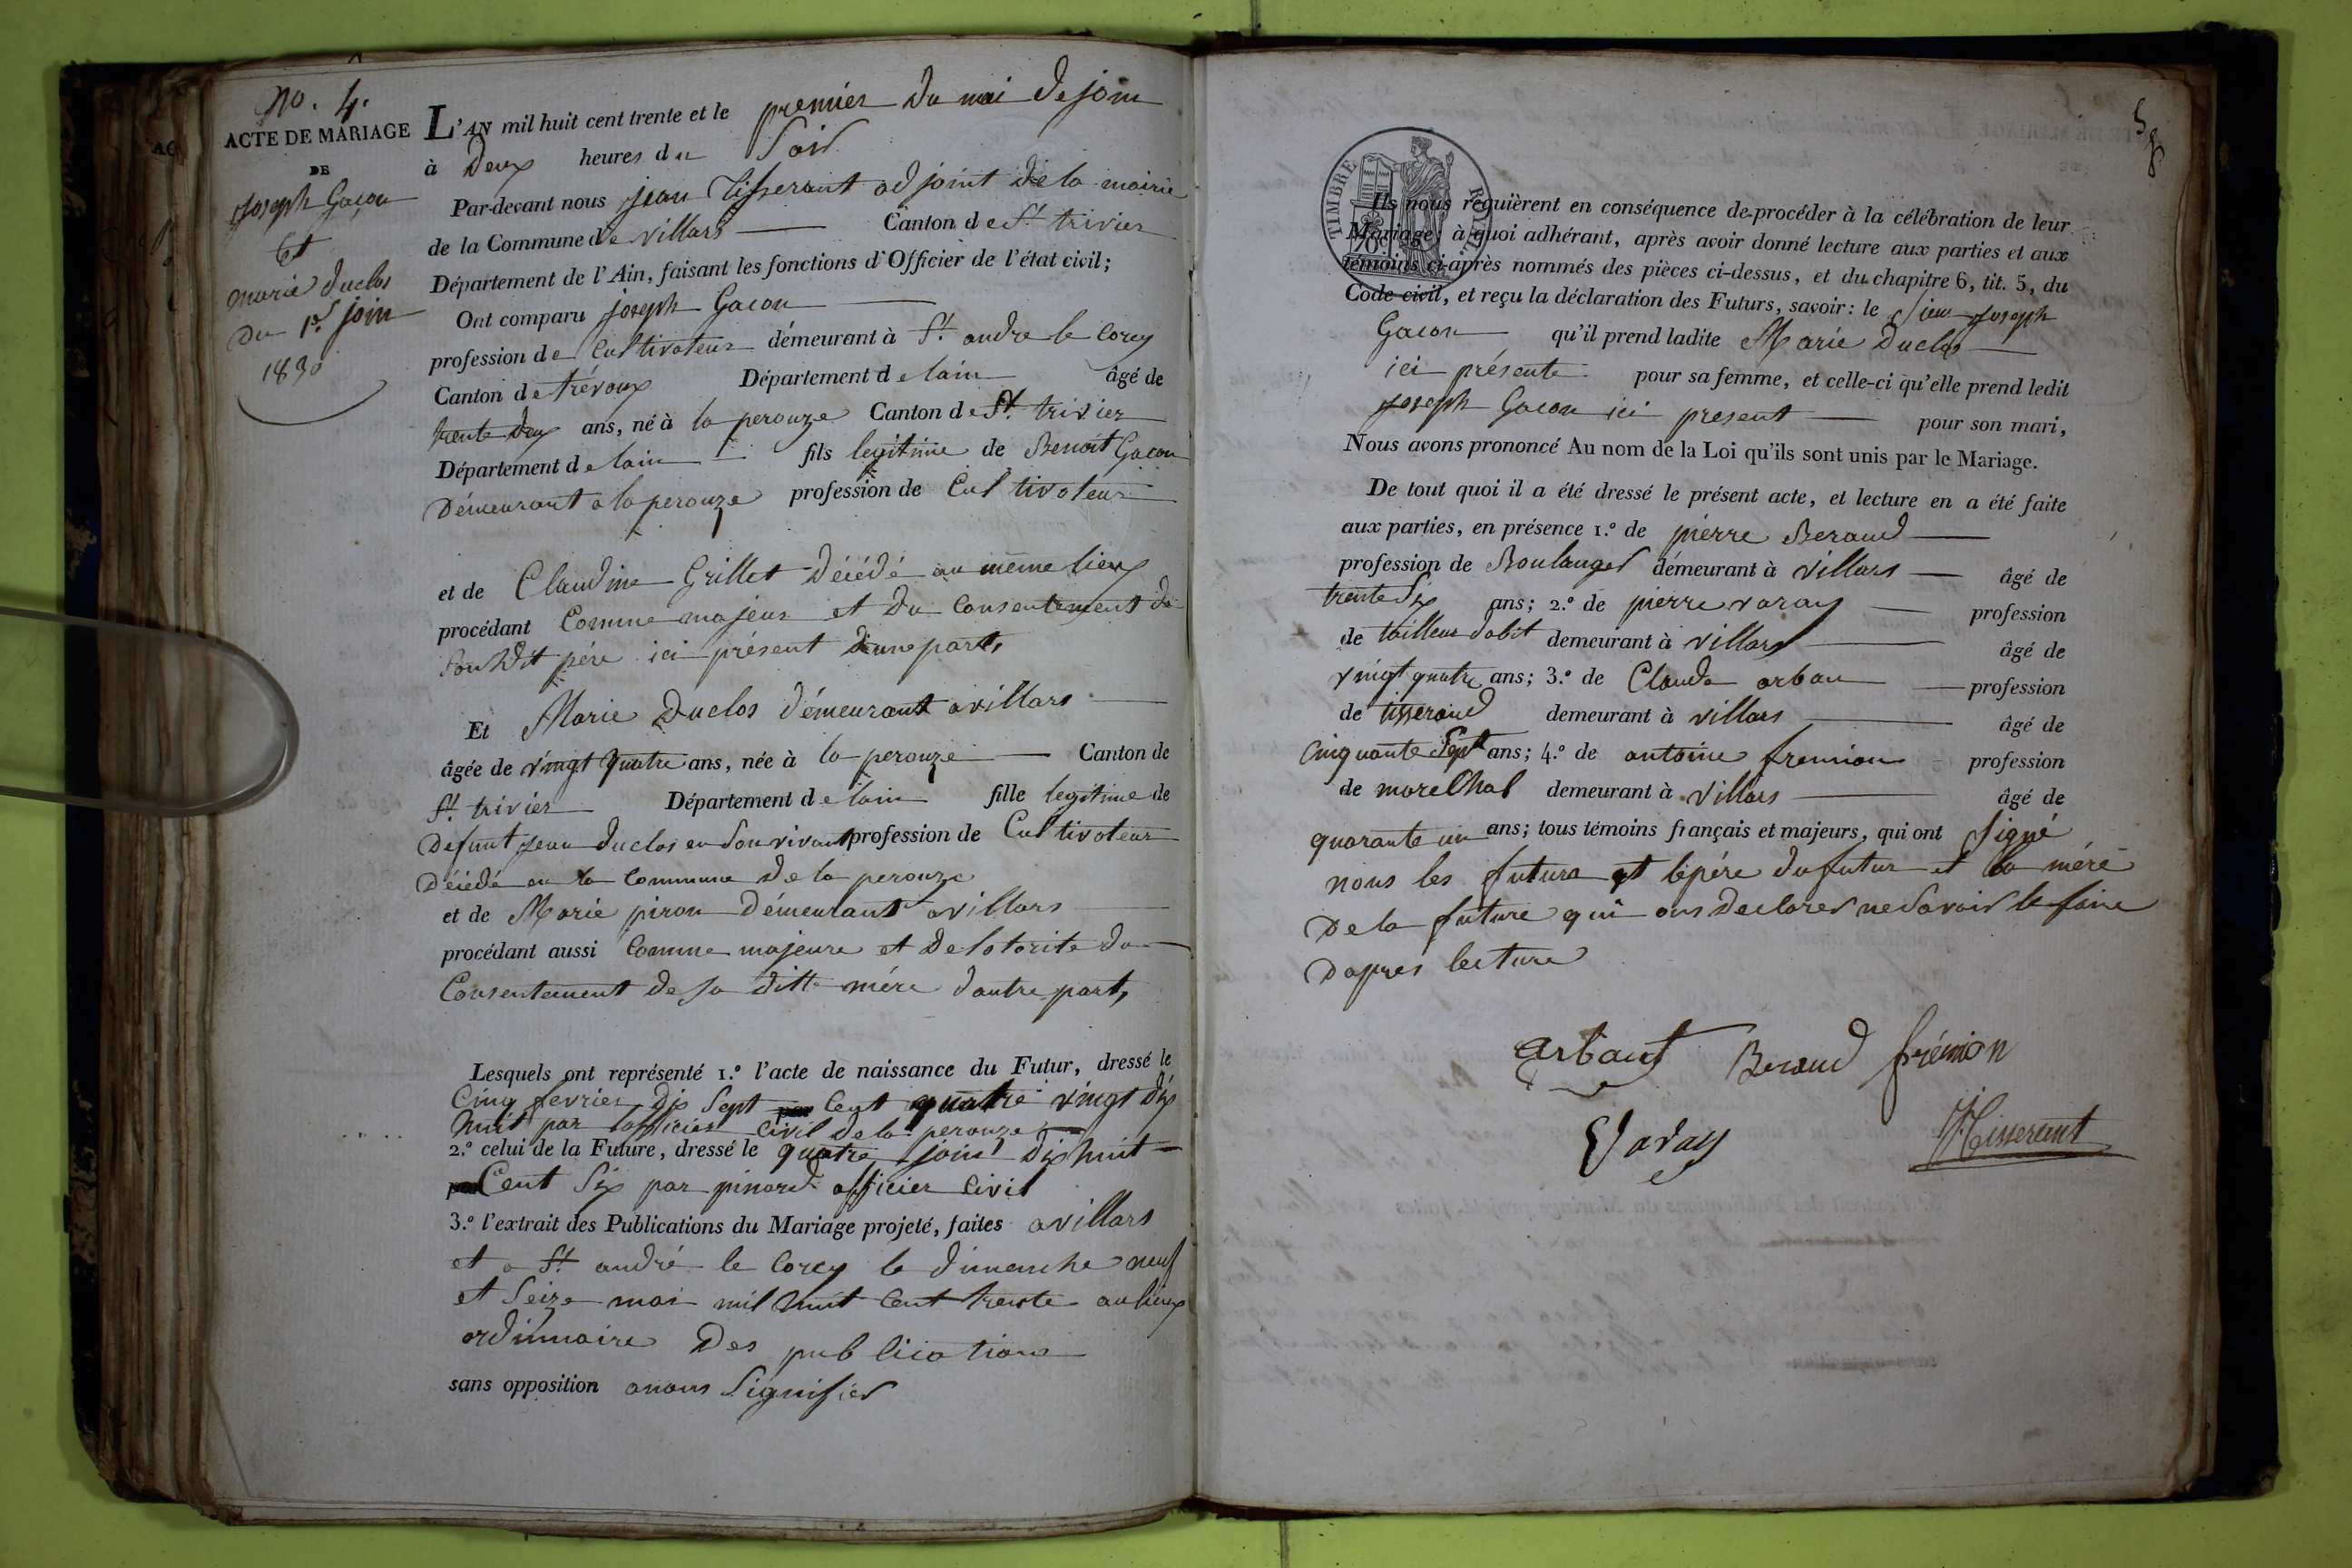 No. 4.
ACTE DE MARIAGE
DE
Joseph Gacon
Et
marie duclos
Du 1er join
1830
L'AN mil huit cent trente et le premier du mai de join
à Deux heures du Soir
Par-devant nous jean Tisserant adjoint de la mairie
de la Commune de villars Canton de St trivier
Département de l'Ain, faisant les fonctions d'Officier de l'état civil;
Ont comparu joseph Gacon
profession de Cultivateur démeurant à St andre le Corcy
Canton de trévoux Département de lain âgé de
trente deux ans, né à la perouze Canton de St. trivier
Département de lain fils legitime de Benoit Gacon
Démeurant a la perouze profession de Cultivateur
et de Claudine Grillet Décédé au même lieux
procédant Comme majeur et du Consentement de
Sou Sdit père ici présent D'une part,
Et Marie Duclos démeurant a villars
âgée de vingt quatre ans, née à la perouze Canton de
St. trivier Département de lain fille legitime de
Defunt jean duclos en Son vivant profession de Cultivateur
Décédé en la Commune de la perouze
et de Marie piron Démeurant a villars
procédant aussi Comme majeure et De lotorite du
Consentement de sa ditte mére dautre part,
Lesquels ont représenté 1.º l'acte de naissance du Futur, dressé le
Cinq fevrier Dix Sept Cent quatre vingt dix
huit par lofficier Civil de la perouze
2.º celui de la Future, dressé le quatre join Dix huit
Cent Six par pinard officier Civil
3.º l'extrait des Publications du Mariage projeté, faites a villars
et a St. andré le Corcy le dimenche neuf
et Seize mai mil huit Cent trente au lieux
ordinnaire Des publications
sans opposition anous Signifier
58
TIMBRE ROYAL
Ils nous requièrent en conséquence de procéder à la célébration de leur
Mariage, à quoi adhérant, après avoir donné lecture aux parties et aux
témoins ci-après nommés des pièces ci-dessus, et du chapitre 6, tit. 5, du
Code civil, et reçu la déclaration des Futurs, savoir: le Sieur Joseph
Gacon qu'il prend ladite Marie Duclos
ici présente pour sa femme, et celle-ci qu'elle prend ledit
Joseph Gacon ici present pour son mari,
Nous avons prononcé Au nom de la Loi qu'ils sont unis par le Mariage.
De tout quoi il a été dressé le présent acte, et lecture en a été faite
aux parties, en présence 1.º de pierre Beraud
profession de Boulanger démeurant à villars âgé de
trente Six ans; 2.º de pierre varay profession
de tailleur dabit demeurant à villars âgé de
vingt quatre ans; 3.º de Claude arban profession
de tisserand demeurant à villars âgé de
Cinquante Sept ans; 4.º de antoine fremion profession
de marelChal demeurant à villars âgé de
quarante un ans; tous témoins français et majeurs, qui ont Signé
nous les futurs et lepére du futur et la mére
De la future qui ons declarer ne Savoir le faire
Dapres lecture
arbant Beraud frémion
Varay JTisserant